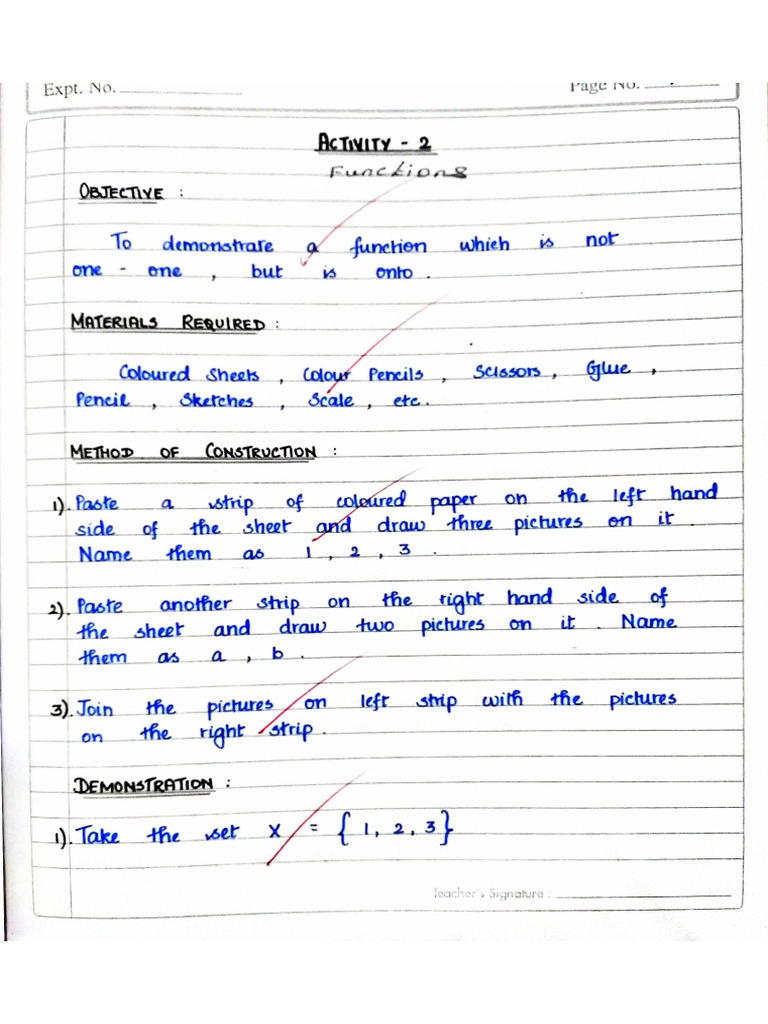 Expt. No.
Page No.
ACTIVITY - 2
Functions
OBJECTIVE :
To demonstrate a function which is not
one - one , but is onto .
MATERIALS REQUIRED :
Coloured Sheets , Colour Pencils , Scissors , Glue ,
Pencil , Sketches , Scale , etc .
METHOD OF CONSTRUCTION :
1). Paste a strip of coloured paper on the left hand
side of the sheet and draw three pictures on it .
Name them as 1 , 2 , 3 .
2). Paste another strip on the right hand side of
the sheet and draw two pictures on it . Name
them as a , b .
3). Join the pictures on left strip with the pictures
on the right strip .
DEMONSTRATION :
1). Take the set X = { 1, 2, 3 }
Teacher's Signature :